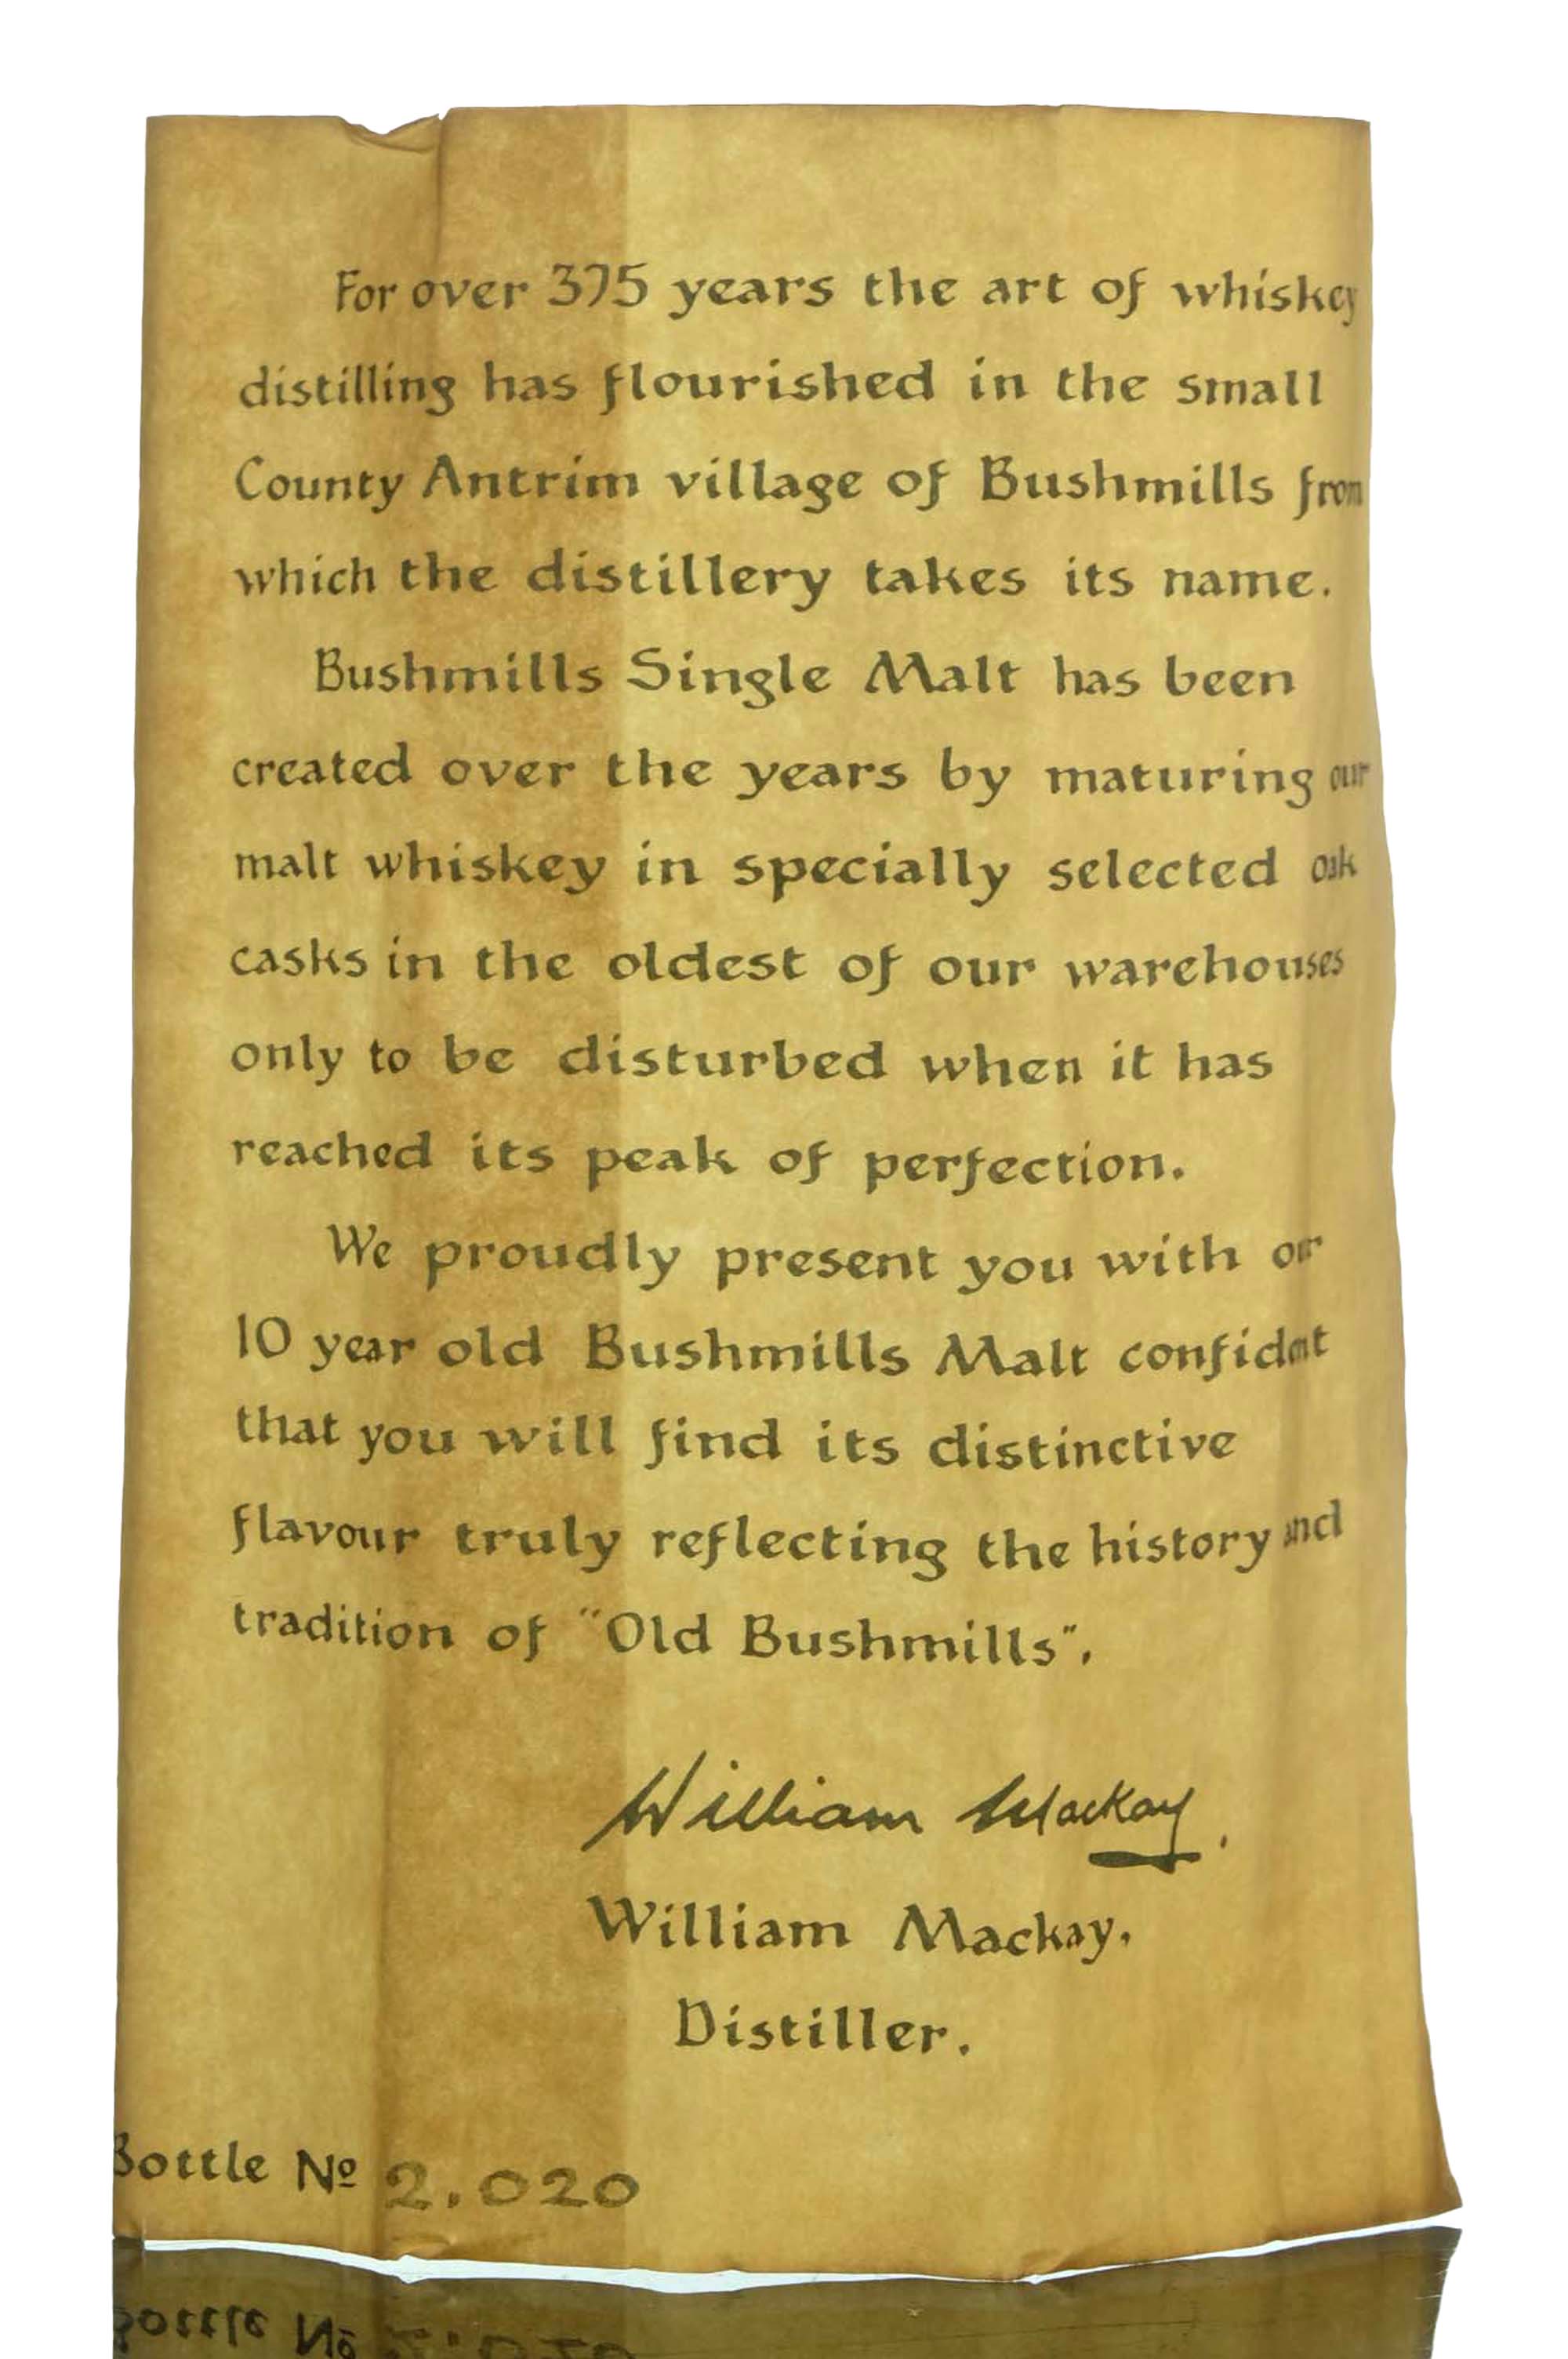 For over 375 years the art of whiskey
distilling has flourished in the small
County Antrim village of Bushmills from
which the distillery takes its name.
Bushmills Single Malt has been
created over the years by maturing our
malt whiskey in specially selected oak
casks in the oldest of our warehouses
only to be disturbed when it has
reached its peak of perfection.
We proudly present you with our
10 year old Bushmills Malt confident
that you will find its distinctive
flavour truly reflecting the history and
tradition of "Old Bushmills".
William Mackay.
William Mackay.
Distiller.
Bottle Nº 2.020